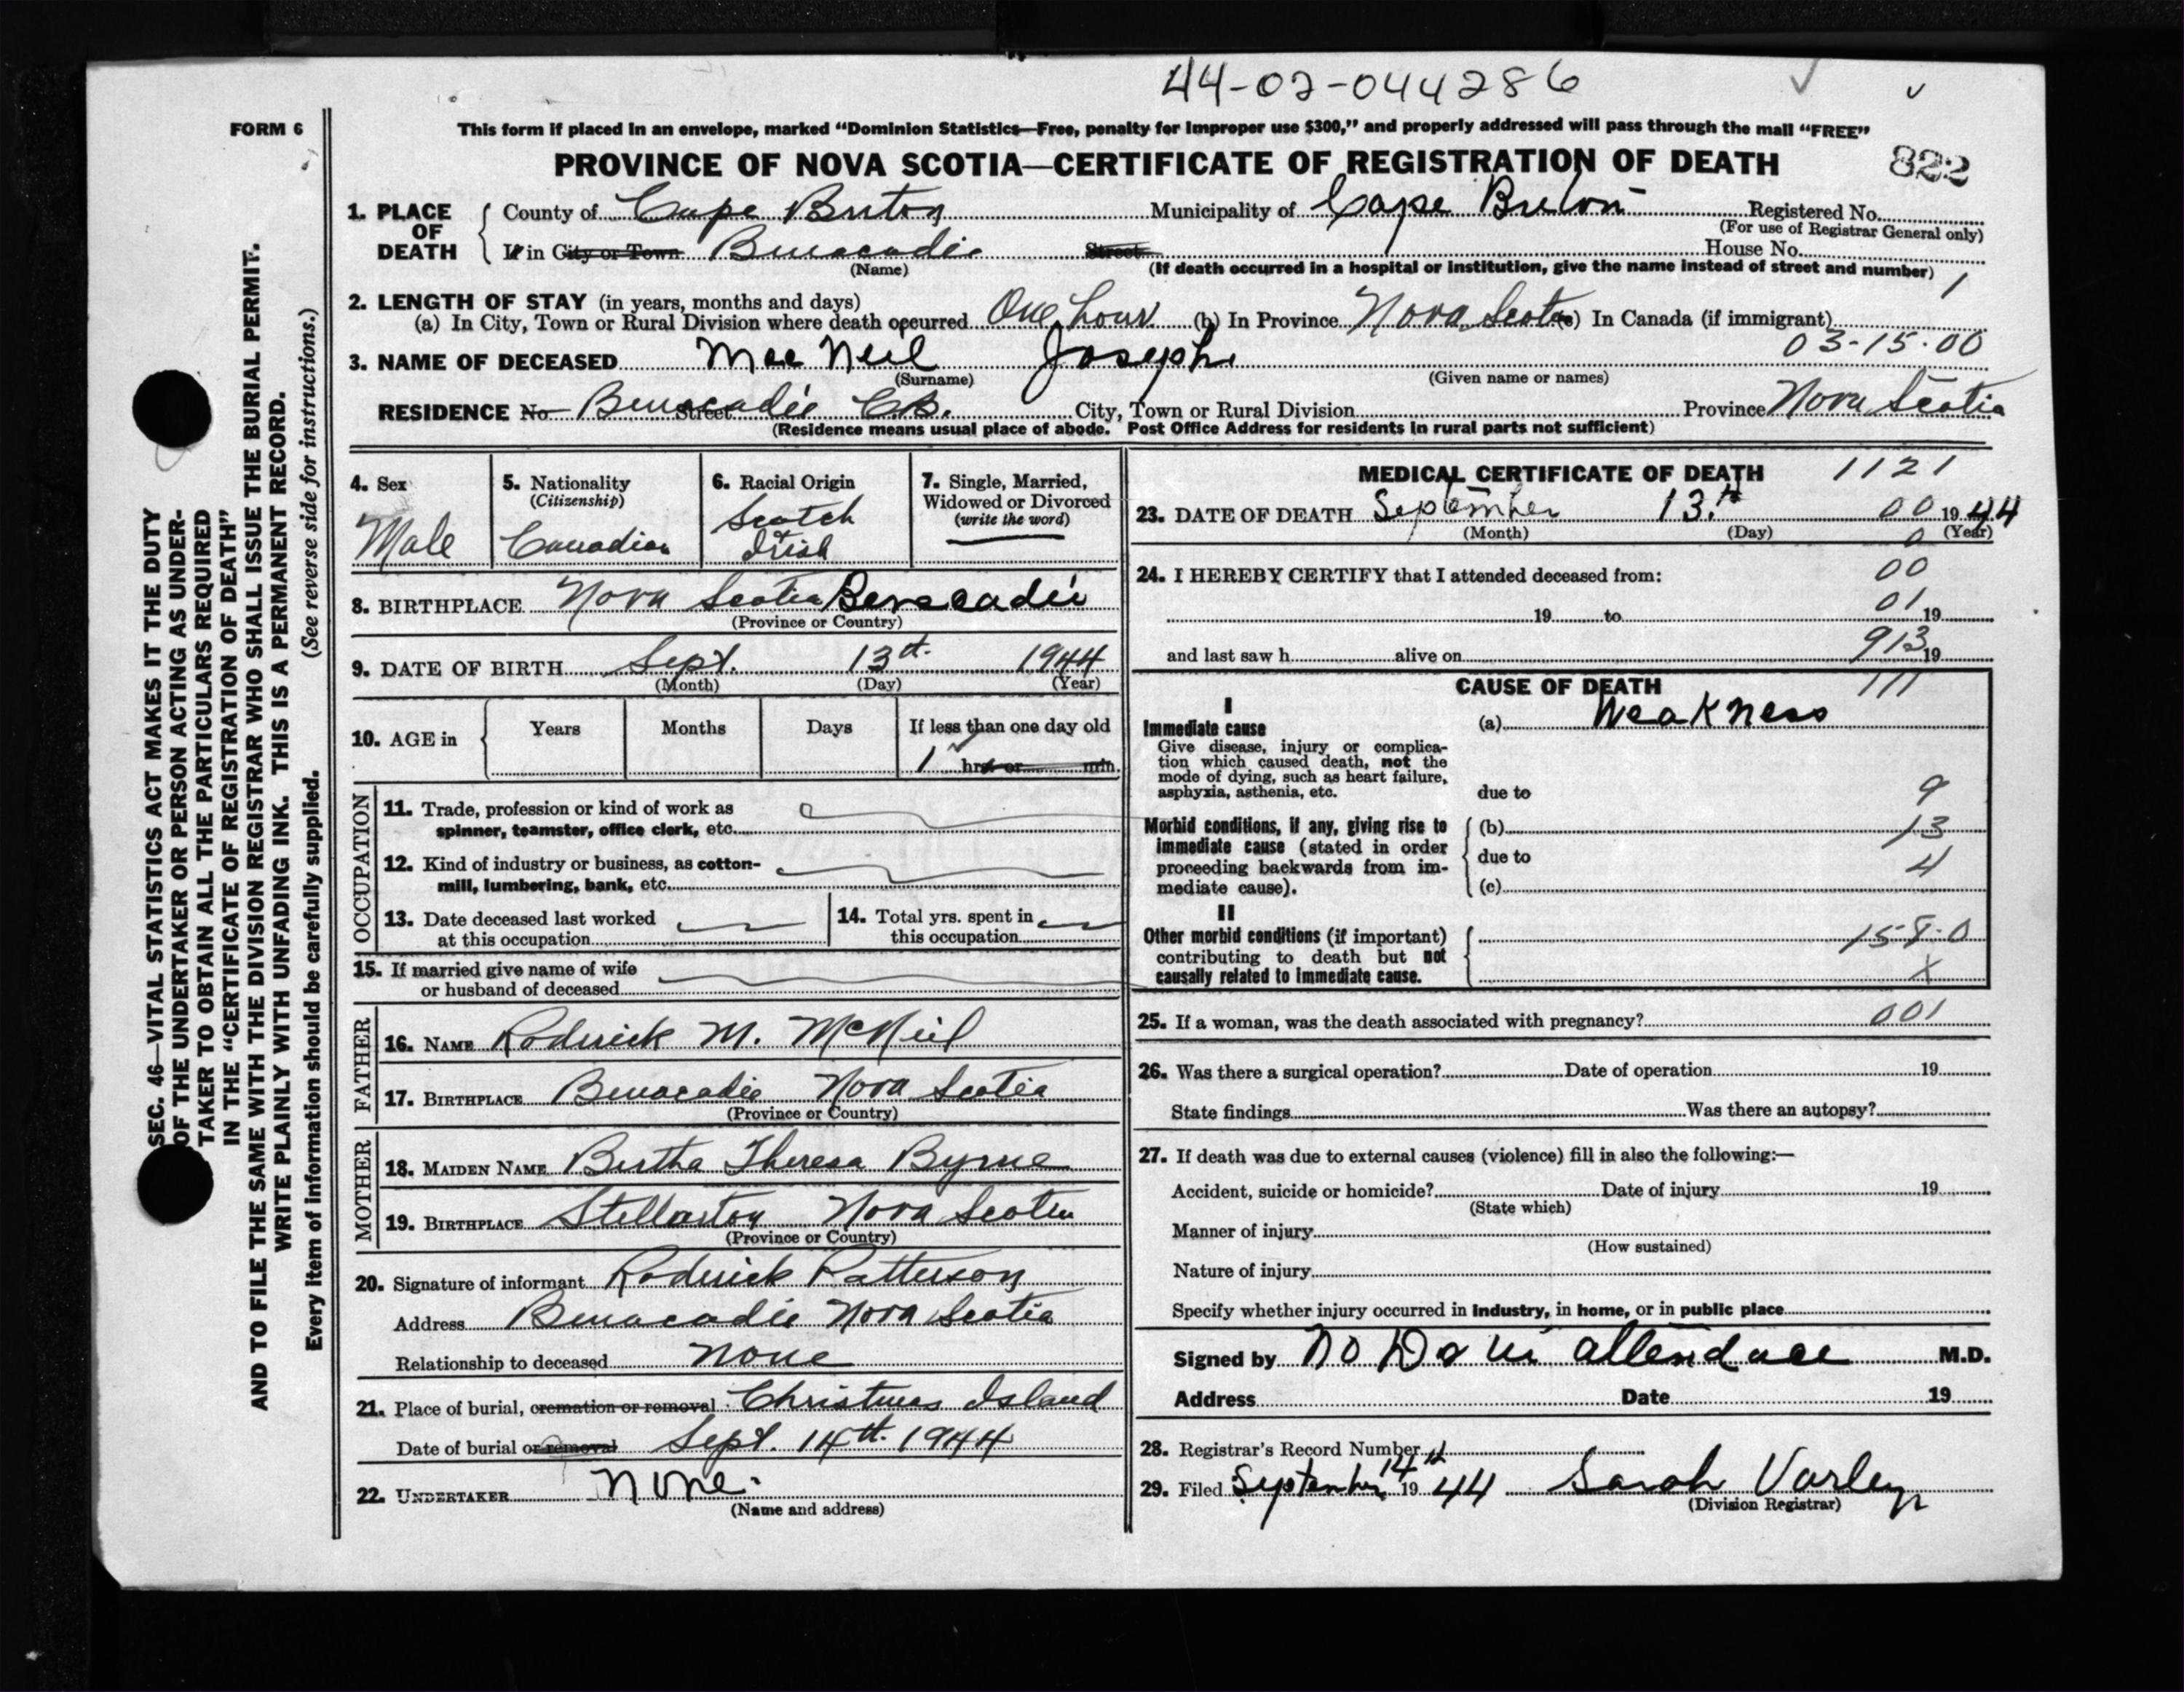 44-02-044286
FORM 6
This form if placed in an envelope, marked "Dominion Statistics—Free, penalty for improper use $300," and properly addressed will pass through the mail "FREE"
PROVINCE OF NOVA SCOTIA—CERTIFICATE OF REGISTRATION OF DEATH
822
1. PLACE OF DEATH
County of Cape Breton Municipality of Cape Breton Registered No.
(For use of Registrar General only)
If in City or Town Benacadie Street House No.
(Name) (If death occurred in a hospital or institution, give the name instead of street and number)
1
2. LENGTH OF STAY (in years, months and days)
(a) In City, Town or Rural Division where death occurred One hour (b) In Province Nova Scotia (c) In Canada (if immigrant)
03-15-00
3. NAME OF DECEASED Mac Neil Joseph
(Surname) (Given name or names)
RESIDENCE No Street Benacadie C.B. City, Town or Rural Division Province Nova Scotia
(Residence means usual place of abode. Post Office Address for residents in rural parts not sufficient)
4. Sex
Male
5. Nationality
(Citizenship)
Canadian
6. Racial Origin
Scotch
Irish
7. Single, Married,
Widowed or Divorced
(write the word)
8. BIRTHPLACE Nova Scotia Benacadie
(Province or Country)
9. DATE OF BIRTH Sept. 13th 1944
(Month) (Day) (Year)
10. AGE in Years Months Days If less than one day old
1 hrs or min.
OCCUPATION
11. Trade, profession or kind of work as
spinner, teamster, office clerk, etc.
12. Kind of industry or business, as cotton-
mill, lumbering, bank, etc.
13. Date deceased last worked
at this occupation
14. Total yrs. spent in
this occupation
15. If married give name of wife
or husband of deceased
FATHER
16. NAME Roderick M. McNeil
17. BIRTHPLACE Benacadie Nova Scotia
(Province or Country)
MOTHER
18. MAIDEN NAME Bertha Theresa Byrne
19. BIRTHPLACE Stellarton Nova Scotia
(Province or Country)
20. Signature of informant Roderick Patterson
Address Benacadie Nova Scotia
Relationship to deceased None
21. Place of burial, cremation or removal Christmas Island
Date of burial or removal Sept. 14th 1944
22. UNDERTAKER None
(Name and address)
MEDICAL CERTIFICATE OF DEATH 1121
23. DATE OF DEATH September 13th 00 19 44
(Month) (Day) (Year)
0
24. I HEREBY CERTIFY that I attended deceased from: 00
01
19 to 19
and last saw h alive on 913 19
CAUSE OF DEATH 111
I
Immediate cause
Give disease, injury or complica-
tion which caused death, not the
mode of dying, such as heart failure,
asphyxia, asthenia, etc.
(a) Weakness
due to 9
Morbid conditions, if any, giving rise to
immediate cause (stated in order
proceeding backwards from im-
mediate cause).
(b) 13
due to 4
(c)
II
Other morbid conditions (if important)
contributing to death but not
causally related to immediate cause.
158-0
X
25. If a woman, was the death associated with pregnancy? 001
26. Was there a surgical operation? Date of operation 19
State findings Was there an autopsy?
27. If death was due to external causes (violence) fill in also the following:—
Accident, suicide or homicide? Date of injury 19
(State which)
Manner of injury
(How sustained)
Nature of injury
Specify whether injury occurred in industry, in home, or in public place
Signed by No Dr in attendace M.D.
Address Date 19
28. Registrar's Record Number
29. Filed September 14th 19 44 Sarah Varley
(Division Registrar)
SEC. 46—VITAL STATISTICS ACT MAKES IT THE DUTY
OF THE UNDERTAKER OR PERSON ACTING AS UNDER-
TAKER TO OBTAIN ALL THE PARTICULARS REQUIRED
IN THE "CERTIFICATE OF REGISTRATION OF DEATH"
AND TO FILE THE SAME WITH THE DIVISION REGISTRAR WHO SHALL ISSUE THE BURIAL PERMIT.
WRITE PLAINLY WITH UNFADING INK. THIS IS A PERMANENT RECORD.
Every item of information should be carefully supplied. (See reverse side for instructions.)